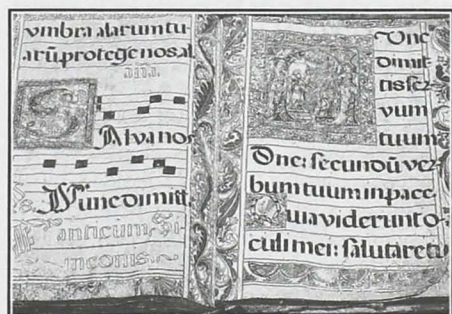 vmbra alarum tu
arū protege nos. al
ana.
Salva nos
Nunc dimitt.
canticum Si
meonis.
Nunc
dimit
tis ser
vum
tuum
Dñe: secundū ver
bum tuum in pace
Quia viderunt o-
culi mei: salutare tu